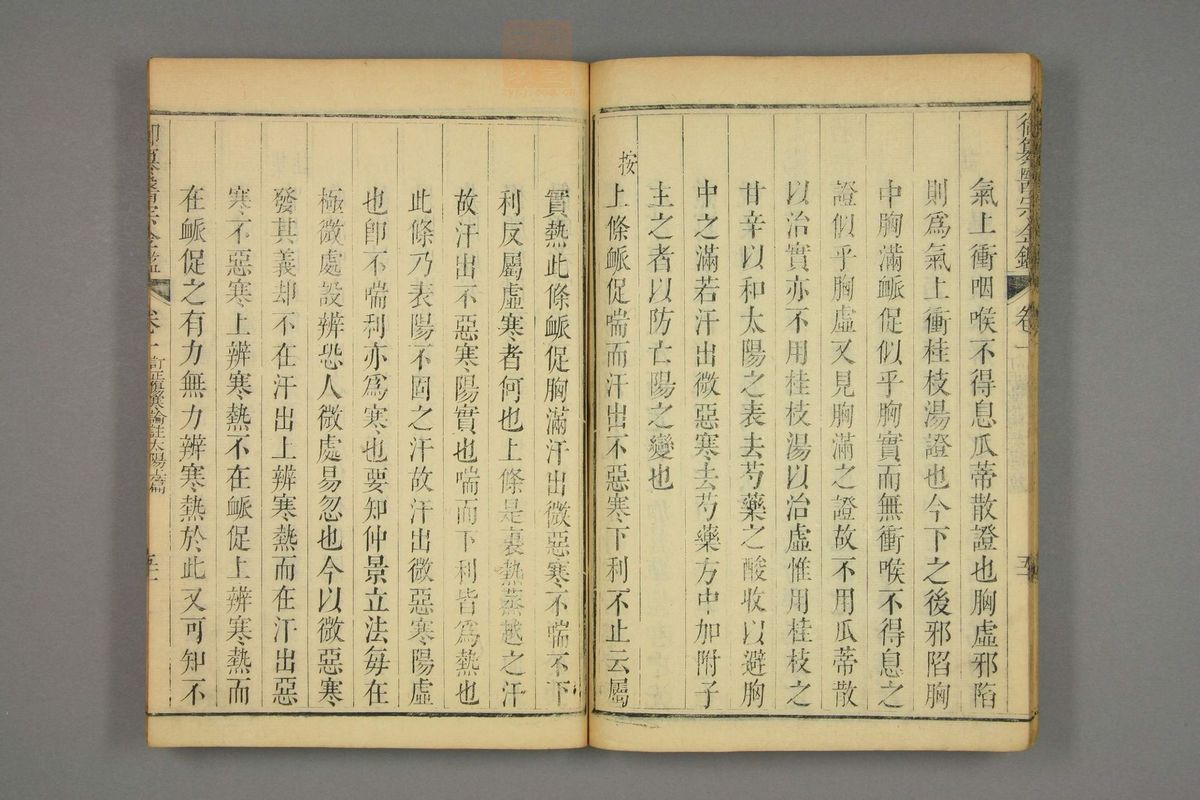 御纂醫宗金鑑 卷一
氣上衝咽喉不得息瓜蒂散證也胸虛邪陷
則爲氣上衝桂枝湯證也今下之後邪陷胸
中胸滿脈促似乎胸實而無衝喉不得息之
證似乎胸虛又見胸滿之證故不用瓜蒂散
以治實亦不用桂枝湯以治虛惟用桂枝之
甘辛以和太陽之表去芍藥之酸收以避胸
中之滿若汗出微惡寒去芍藥方中加附子
主之者以防亡陽之變也
按上條脈促喘而汗出不惡寒下利不止云屬
實熱此條脈促胸滿汗出微惡寒不喘不下
利反屬虛寒者何也上條是裏熱蒸越之汗
故汗出不惡寒陽實也喘而下利皆爲熱也
此條乃表陽不固之汗故汗出微惡寒陽虛
也卽不喘利亦爲寒也要知仲景立法每在
極微處設辨恐人微處易忽也今以微惡寒
發其義却不在汗出上辨寒熱而在汗出惡
寒不惡寒上辨寒熱不在脈促上辨寒熱而
在脈促之有力無力辨寒熱於此又可知不
御纂醫宗金鑑 卷一 訂正傷寒論註太陽上篇